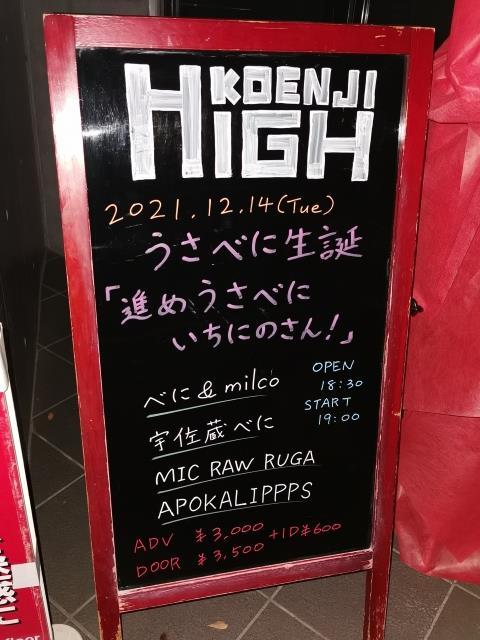 KOENJI
HIGH
2021.12.14(Tue)
うさべに生誕
「進めうさべに
いちにのさん!」
OPEN
18:30
START
19:00
べに & milco
宇佐蔵べに
MIC RAW RUGA
APOKALIPPPS
ADV ¥3,000 +1D¥600
DOOR ¥3,500